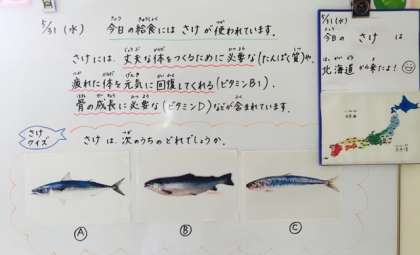 5/31 (水) 今日の給食には さけが使われています。
さけには、丈夫な体をつくるために必要な(たんぱく質)や、
疲れた体を元気に回復してくれる(ビタミンB1)、
骨の成長に必要な(ビタミンD)などが含まれています。
さけクイズ
さけは、次のうちのどれでしょうか。
A
B
C
5/31 (水)
今日の さけ は
北海道から来たよ!